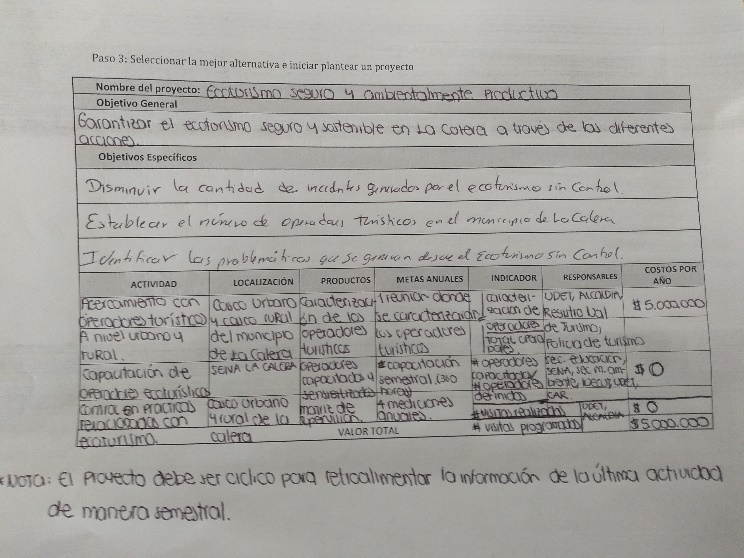 Paso 3: Seleccionar la mejor alternativa e iniciar plantear un proyecto
Nombre del proyecto: Ecoturismo seguro y ambientalmente Productivo
Objetivo General
Garantizar el ecotorismo seguro y sostenible en La Calera a través de las diferentes
acciones.
Objetivos Específicos
Disminuir la cantidad de incidntes generados por el ecoturismo sin Control.
Establecer el número de operadores turísticos en el municipio de La Calera
Identificar las problemáticas que se generan desde el Ecoturismo sin Control.
ACTIVIDAD LOCALIZACIÓN PRODUCTOS METAS ANUALES INDICADOR RESPONSABLES COSTOS POR AÑO
Acercamiento con
operadores turísticos
A nivel urbano y
rural.
Casco Urbano
y casco rural
del municipio
de La Calera
Caracterizaci
ón de los
operadores
turísticos
1 reunión donde
se caracterizarán
los operadores
turísticos
caracteri-
zación de
operadores
UDET, Alcaldía,
de Turismo,
Policía de turismo
$ 5.000.000
Capacitación de
operadores ecoturísticos
SENA LA CALERA
operadores
capacitados y
sensibilizados
capacitación
semestral
# operadores
capacitados/
# operadores
definidos
sec. educación,
SENA, sec m. am-
biente,
CAR
$ 0
Control en prácticas
relacionada con
ecoturismo.
casco urbano
y rural de la
calera
matriz de
supervisión.
4 mediciones
anuales.
# visitas realizadas
# visitas programadas
UDET,
ALCALDIA
$ 0
VALOR TOTAL
$ 5.000.000
*NOTA: El Proyecto debe ser cíclico para retroalimentar la información de la última actividad
de manera semestral.